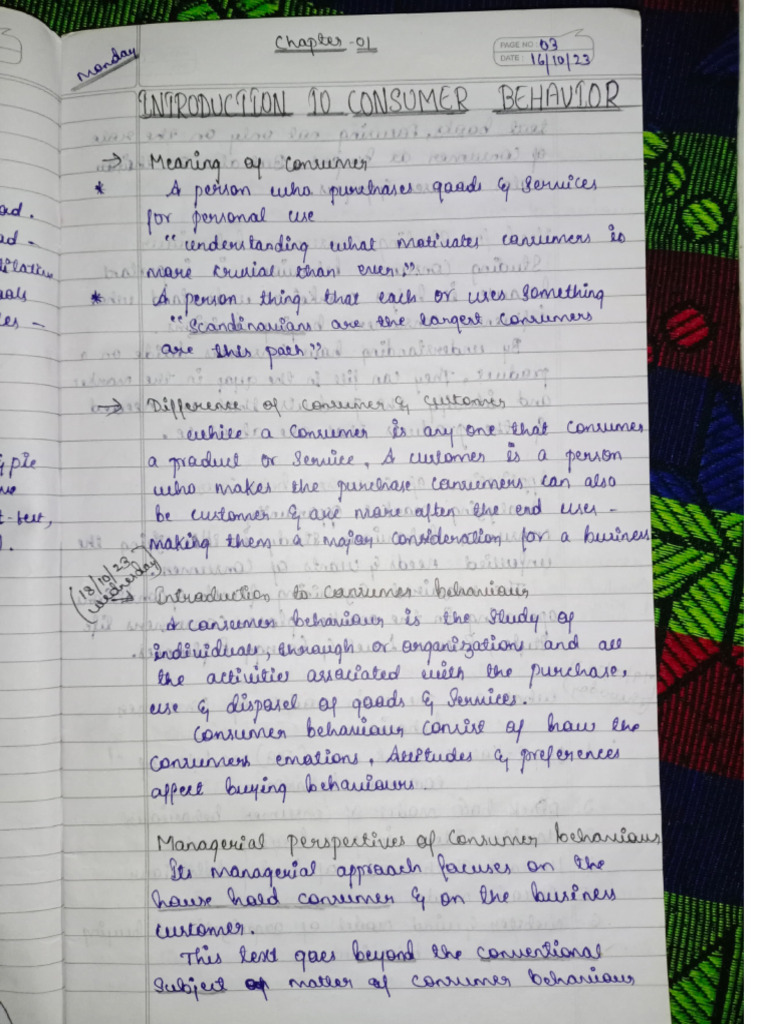 Chapter-01
Monday
PAGE NO.: 03
DATE: 16/10/23
INTRODUCTION TO CONSUMER BEHAVIOR
→ Meaning of consumer
* A person who purchases goods & services
for personal use
"understanding what motivates consumers is
more crucial than ever."
* A person thing that each or uses something
"Scandinavians are the largest consumers
are this path"
→ Difference of consumer & customer
while a consumer is any one that consumer
a product or service, A customer is a person
who makes the purchase consumers can also
be customer & are more after the end uses -
making them a major consideration for a business
(18/10/23
Wednesday)
→ Introduction to consumer behaviour
A consumer behaviour is the study of
individuals, through or organizations and all
the activities associated with the purchase,
use & disposel of goods & services.
Consumer behaviour consist of how the
consumers emotions, Attitudes & preferences
affect buying behaviours
Managerial perspectives of consumer behaviour
Its managerial approach focuses on the
house hold consumer & on the business
customer.
This text goes beyond the conventional
subject of matter of consumer behaviour